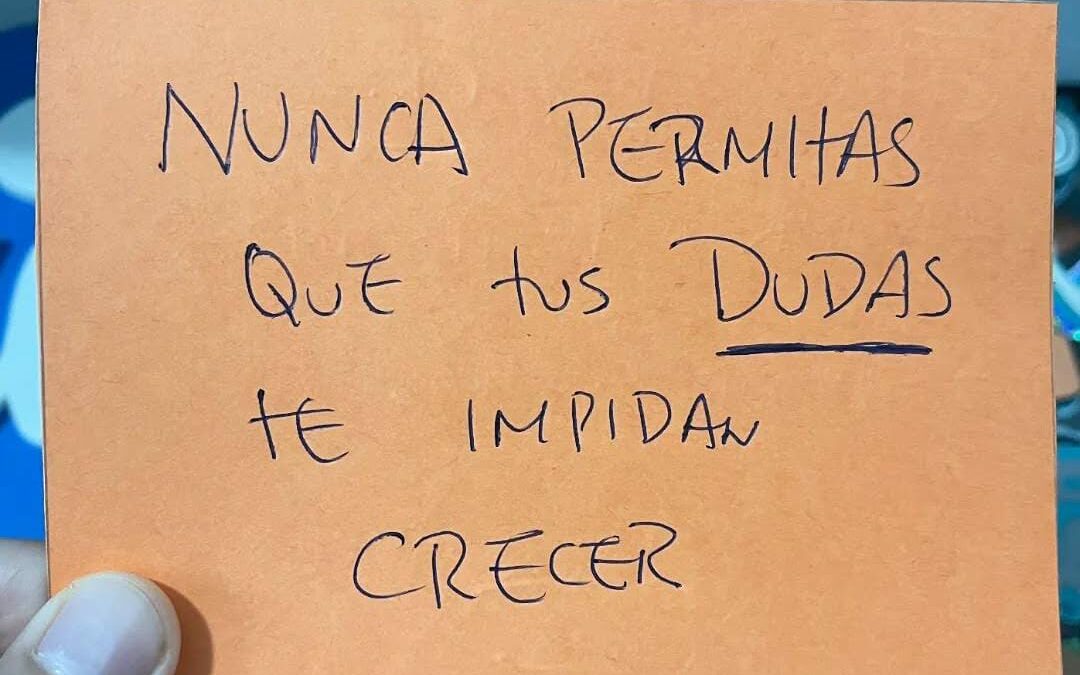 NUNCA PERMITAS
QUE tus DUDAS
tE IMPIDAN
CRECER